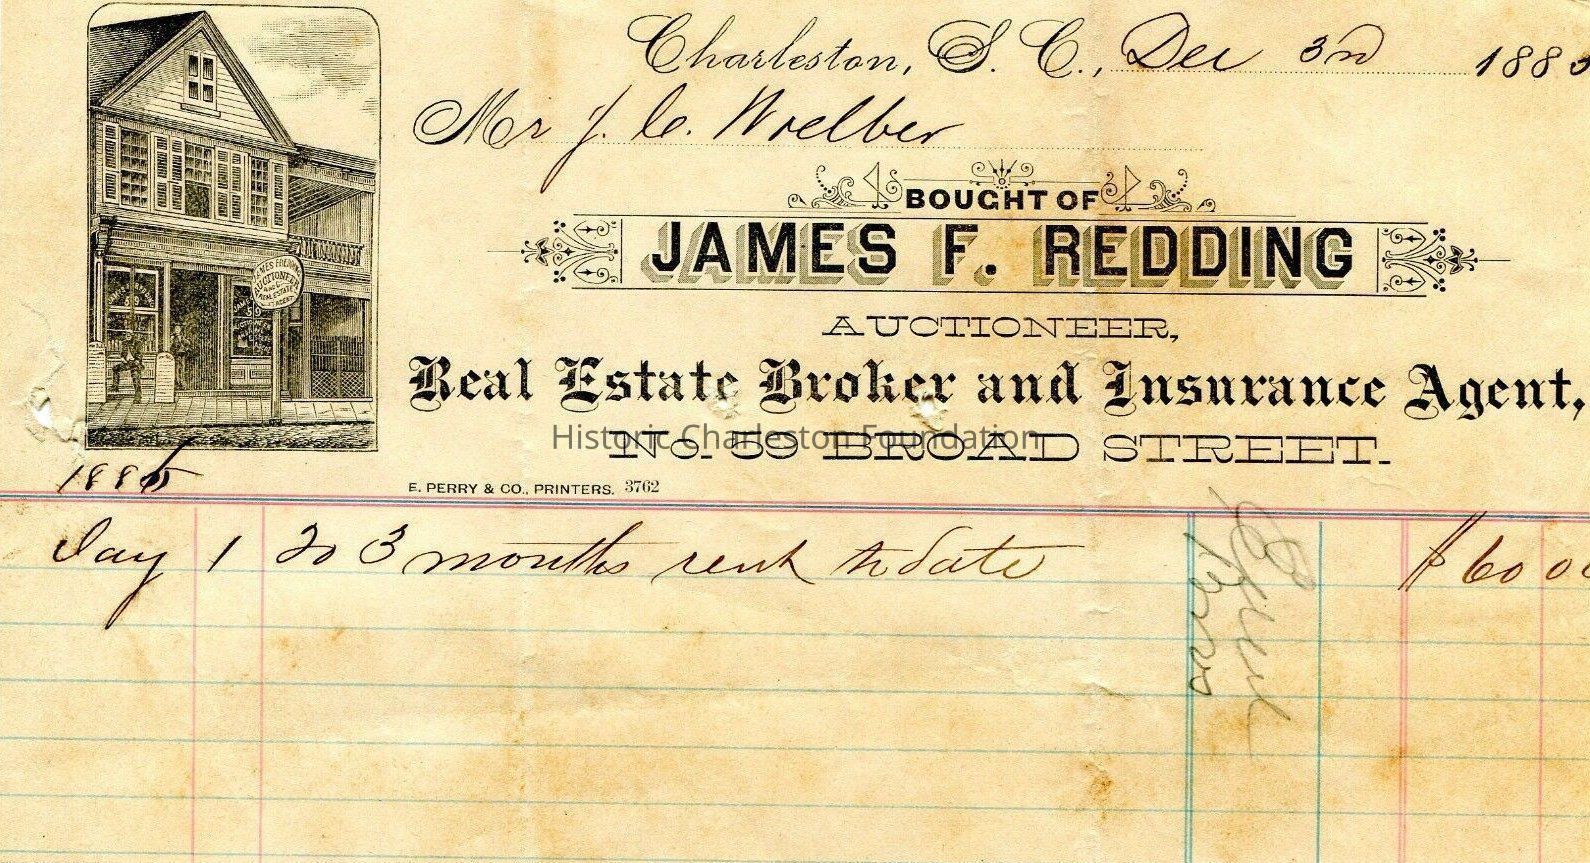 Charleston, S. C., Dec 3rd 188
Mr J. C. Woelber
BOUGHT OF
JAMES F. REDDING
AUCTIONEER,
Real Estate Broker and Insurance Agent,
No. 59 BROAD STREET.
Historic Charleston Foundation
E. PERRY & CO., PRINTERS. 3762
1885
1 To 3 months rent to date $60 00